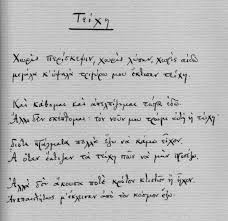 Τείχη
Χωρὶς περίσκεψιν, χωρὶς λύπην, χωρὶς αἰδὼ
μεγάλα κ' ὑψηλὰ τριγύρω μου ἔκτισαν τείχη.
Καὶ κάθομαι καὶ ἀπελπίζομαι τώρα ἐδῶ.
Ἄλλο δὲν σκέπτομαι: τὸν νοῦν μου τρώγει αὐτὴ ἡ τύχη·
διότι πράγματα πολλὰ ἔξω νὰ κάμω εἶχον.
Ἆ ὅταν ἔκτιζαν τὰ τείχη πῶς νὰ μὴν προσέξω.
Ἀλλὰ δὲν ἄκουσα ποτὲ κρότον κτιστῶν ἢ ἦχον.
Ἀνεπαισθήτως μ' ἔκλεισαν ἀπὸ τὸν κόσμον ἔξω.